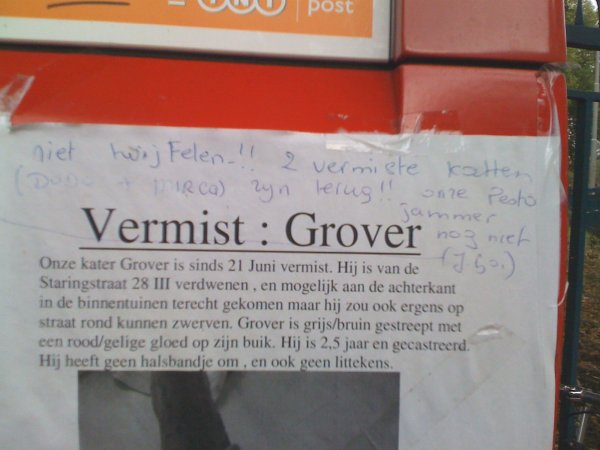 TNT post
niet twijfelen..!! 2 vermiste katten
(DODO + MIRCA) zijn terug!! onze Pesto
jammer
nog niet
Vermist : Grover
Onze kater Grover is sinds 21 Juni vermist. Hij is van de
Staringstraat 28 III verdwenen , en mogelijk aan de achterkant
in de binnentuinen terecht gekomen maar hij zou ook ergens op
straat rond kunnen zwerven. Grover is grijs/bruin gestreept met
een rood/gelige gloed op zijn buik. Hij is 2,5 jaar en gecastreerd.
Hij heeft geen halsbandje om , en ook geen littekens.